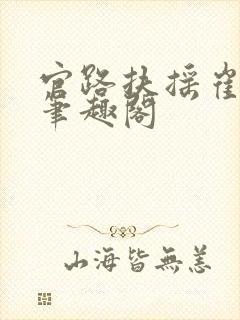 官路扶摇崔
笔趣阁
山海皆無恙